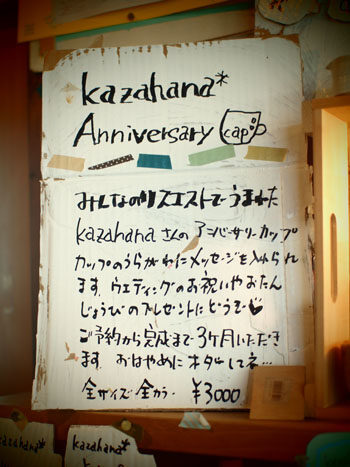 kazahana*
Anniversary cap
みんなのリクエストでうまれた
kazahanaさんのアニバーサリーカップ
カップのうらがわにメッセージを入れられ
ます。ウエディングのお祝いやおたん
じょうびのプレゼントにどうぞ♥
ご予約から完成まで3ヶ月いただき
ます。おはやめにオーダーしてネ…
全サイズ全カラー ¥3000
kazahana*
kazahana*